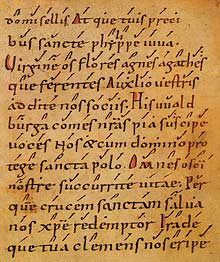 domi sellis At que tuis preci
bus sancte phylippe iuua.
Virgineos Flores agnes agathes
que ferentes Auxilio uestris
addite nos sociis. His uuald
burga comes nras pia suscipe
uoces Nos & cum domno pro
tege sancta polo. Omnes osci
nostre succurrite uitae. Per
que crucem sanctam salua
nos xpe redemptor Irade
que tua clemens nos eripe